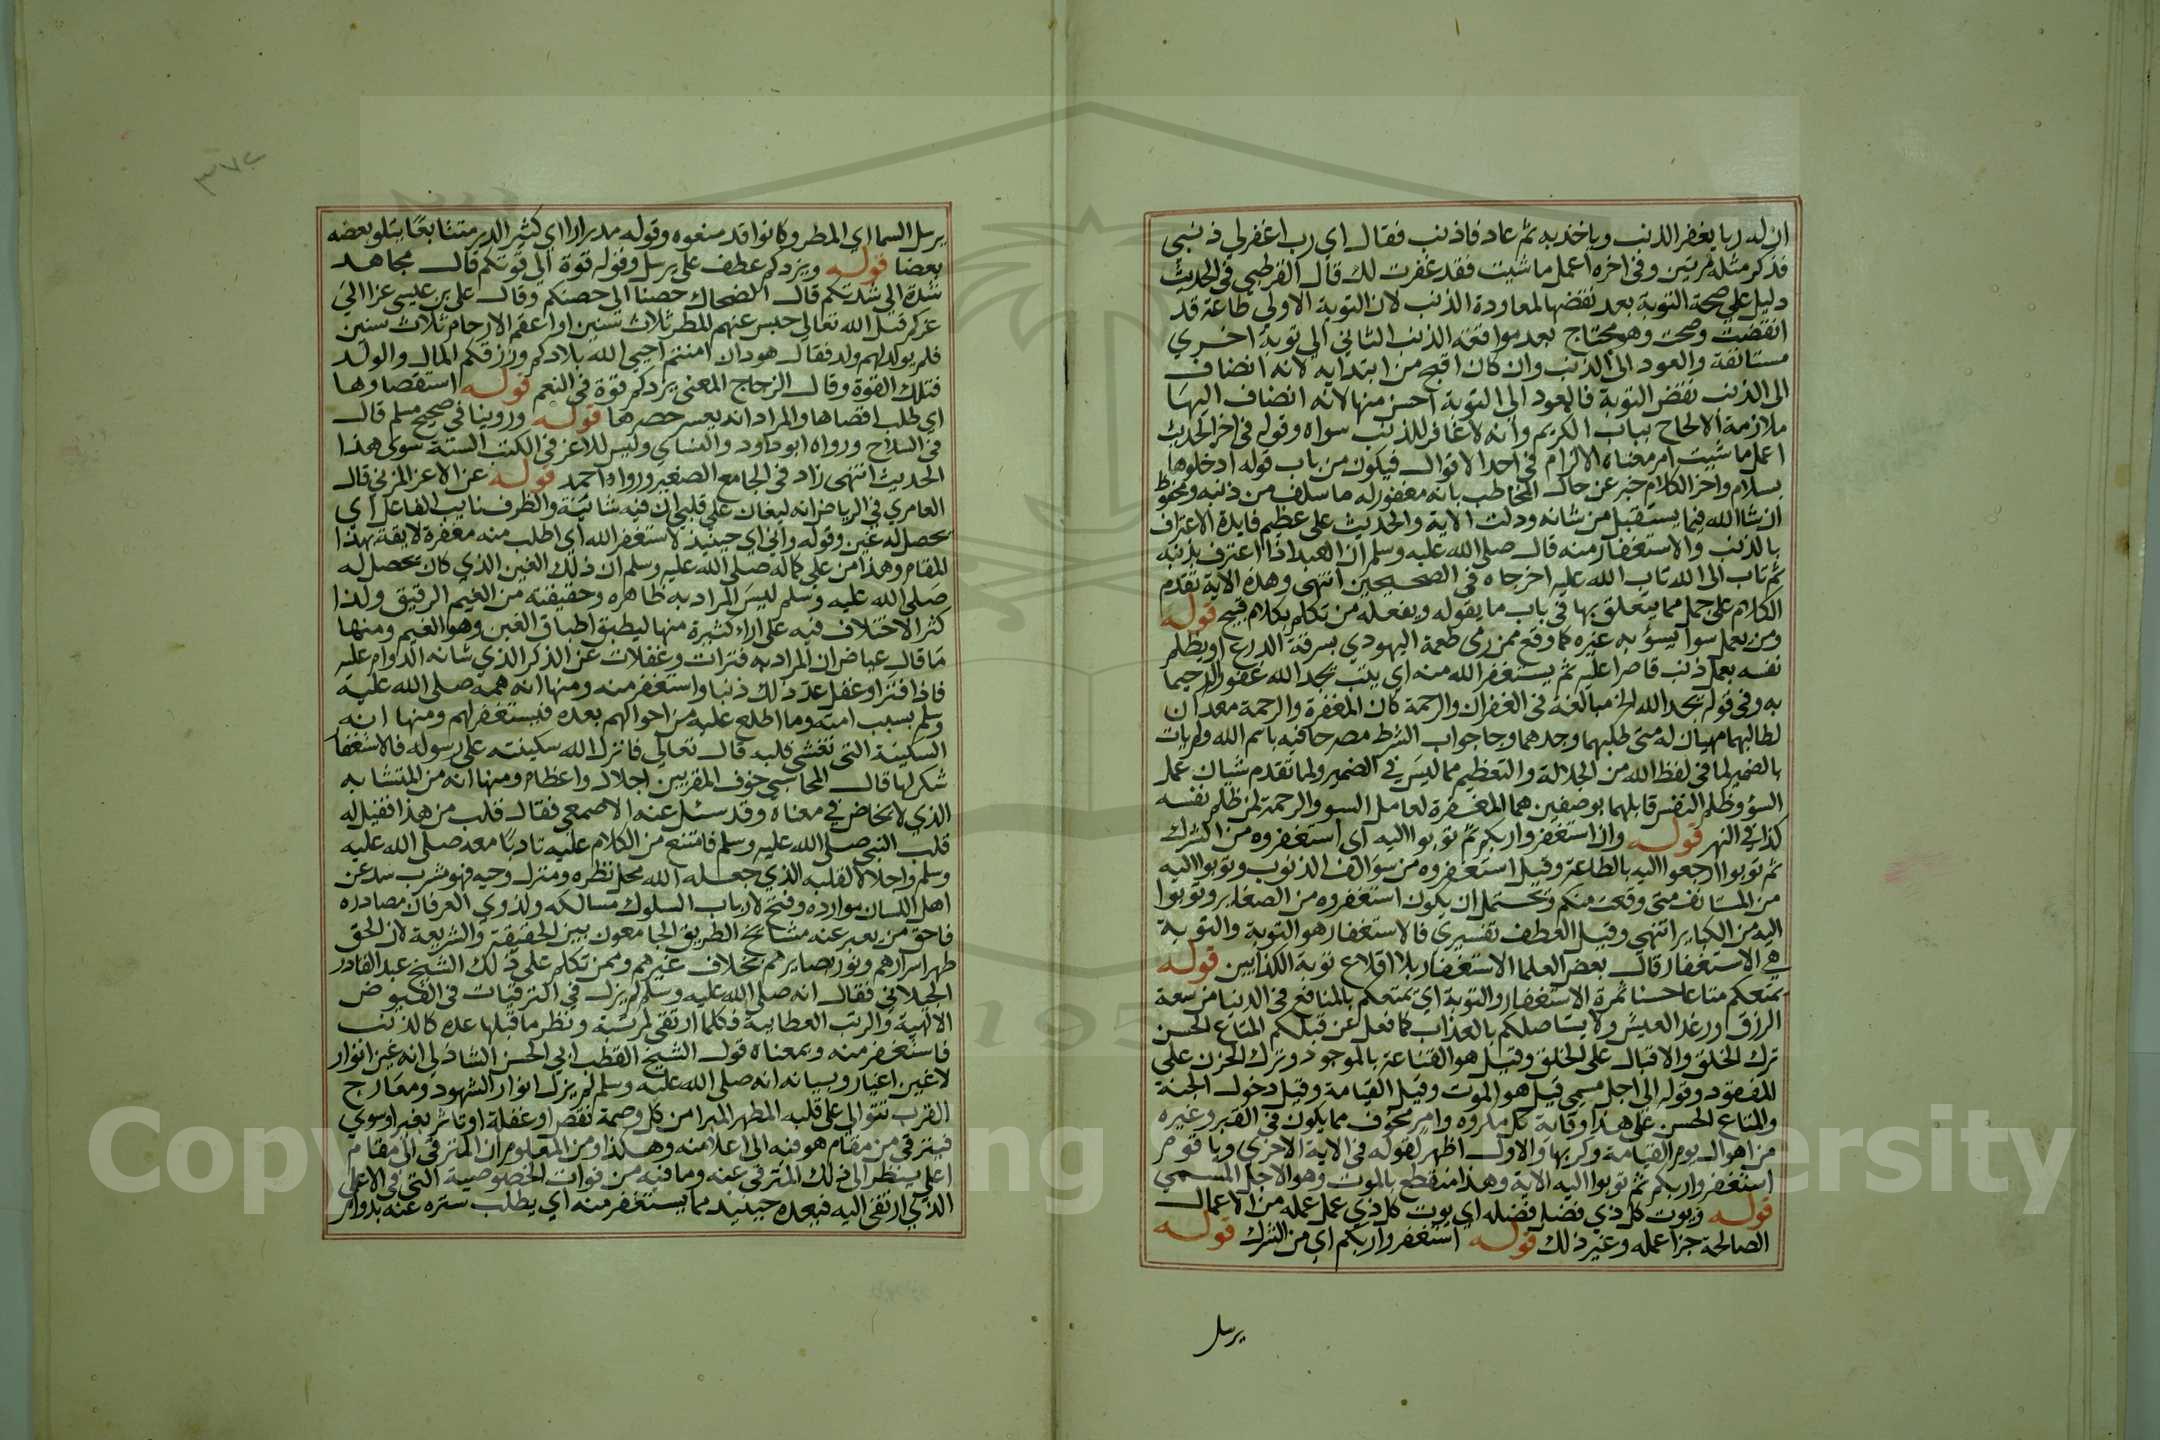 ان له ربا يغفر الذنب وياخذ به ثم عاد فاذنب فقال اي رب اغفر لي ذنبي
فذكر مثله مرتين وفي اخره اعمل ما شيت فقد غفرت لك قال القرطبي في الحديث
دليل علي صحة التوبة بعد نقضها لمعاودة الذنب لان التوبة الاولي طاعة قد
انقضت وصحت وهو محتاج بعد مواقعة الذنب الثاني الي توبة اخري
مستانفة والعود الي الذنب وان كان اقبح من ابتدايه لانه انضاف
الي الذنب نقض التوبة فالعود الي التوبة احسن منها لانه انضاف اليها
ملازمة الالحاح بباب الكريم وانه لا غافر للذنب سواه وقوله في اخر الحديث
اعمل ما شيت امر معناه الاكرام في احد الاقوال فيكون من باب قوله ادخلوها
بسلام واخر الكلام خبر عن حال المخاطب بانه مغفور له ما سلف من ذنبه ومحفوظ
ان شا الله فيما يستقبل من شانه ودلت الاية والحديث علي عظيم فايدة الاعتراف
بالذنب والاستغفار منه قال صلي الله عليه وسلم ان العبد اذا اعترف بذنبه
ثم تاب الي الله تاب الله عليه اخرجاه في الصحيحين انتهي وهذه الاية تقدم
الكلام علي جمل مما يتعلق بها في باب ما يقوله ويفعله من تكلم بكلام قبيح قوله
ومن يعمل سوا يسؤ به غيره كما وقع ممن رمي طعمة اليهودي بسرقة الدرع او يظلم
نفسه بعمل ذنب قاصرا عليه ثم يستغفر الله منه اي يتب يجد الله غفورا رحيما
به وفي قوله يجد الله الخ مبالغة في الغفران والرحمة كان المغفرة والرحمة معدان
لطالبهما مهيان له متي طلبهما وجدهما وجا جواب الشرط مصرحا فيه باسم الله ولم يات
بالضمير لما في لفظ الله من الجلالة والتعظيم مما ليس في الضمير ولما تقدم شيان عمل
السؤ وظلم النفس قابلهما بوصفين هما المغفرة لعامل السوو الرحمة لمن ظلم نفسه
كذا في النهر قوله وان استغفروا ربكم ثم توبوا اليه اي استغفروه من الشرك
ثم توبوا ارجعوا اليه بالطاعة وقيل استغفروه من سوالف الذنوب وتوبوا اليه
من المستانف متي وقعت منكم ويحتمل ان يكون استغفروه من الصغاير وتوبوا
اليه من الكباير انتهي وقيل العطف تفسيري فالاستغفار هو التوبة والتوبة
هي الاستغفار قال بعض العلما الاستغفار بلا اقلاع توبة الكذابين قوله
يمتعكم متاعا حسنا ثمرة الاستغفار والتوبة اي يمتعكم بالمنافع في الدنيا من سعة
الرزق ورغد العيش ولا يستاصلكم بالعذاب كما فعل عن قبلكم المتاع الحسن
ترك الخلق والاقبال علي الخلق وقيل هو القناعة بالموجود وترك الحزن علي
المفقود وقوله الي اجل مسمي قيل هو الموت وقيل القيامة وقيل دخول الجنة
والمتاع الحسن علي هذا وقاية كل مكروه وامر مخوف مما يكون في القبر وغيره
من اهوال يوم القيامة وكربها والاول اظهر لقوله في الاية الاخري ويا قوم
استغفروا ربكم ثم توبوا اليه الاية وهذا منقطع بالموت وهو الاجل المسمي
قوله ويوت كل ذي فضل فضله اي يوت كل ذي عمل عمله من الاعمال
الصالحة جزا عمله وغير ذلك قوله استغفروا ربكم اي من الشرك قوله
يرسل
٣٧٢
يرسل السما اي المطر وكانوا قد منعوه وقوله مدرارا اي كثير الدر متتابعا يتلو بعضه
بعضا قوله ويزدكم عطف علي يرسل وقوله قوة الي قوتكم قال مجاهد
شدة الي شدتكم قال الضحاك خصبا الي خصبكم وقال علي بن عيسي عزا الي
عزكم قيل الله تعالي حبس عنهم المطر ثلاث سنين او اعقم الارحام ثلاث سنين
فلم يولد لهم ولد فقال هود ان امنتم احيي الله بلادكم ورزقكم المال والولد
فتلك القوة وقال الزجاج المعني يزدكم قوة في النعم قوله استقصاوها
اي طلب اقصاها والمراد انه يعسر حصرها قوله وروينا في صحيح مسلم قال
في السلاح ورواه ابو داود والنساي وليس للاغر في الكتب الستة سوي هذا
الحديث انتهي زاد في الجامع الصغير ورواه احمد قوله عن الاغر المزني قال
العامري في الرياض انه ليغان علي قلبي ان فيه شانية والظرف نايب الفاعل اي
يحصل له غين وقوله واني اي حينيذ لاستغفر الله اي اطلب منه مغفرة لايقة بهذا
المقام وهذا من علي كماله صلي الله عليه وسلم ان ذلك الغين الذي كان يحصل له
صلي الله عليه وسلم ليس المراد به ظاهره وحقيقته من الغيم الرقيق ولذا
كثر الاختلاف فيه علي اراء كثيرة منها ليطبق اطباق الغين وهو الغيم ومنها
ما قال عياض ان المراد به فترات وغفلات عن الذكر الذي شانه الدوام عليه
فاذا فتر او غفل عد ذلك ذنبا واستغفر منه ومنها انه همه صلي الله عليه
وسلم بسبب امته وما اطلع عليه من احوالهم بعده فيستغفر لهم ومنها انه
السكينة التي تغشي قلبه قال تعالي فانزل الله سكينته علي رسوله فالاستغفار
شكر لها قال المحاسبي خوف المقربين اجلال واعظام ومنها انه من المتشابه
الذي لا يخاض في معناه وقد سئل عنه الاصمعي فقال قلب من هذا فقيل له
قلب النبي صلي الله عليه وسلم فامتنع من الكلام عليه تادبا معه صلي الله عليه
وسلم واجلالا لقلبه الذي جعله الله محل نظره ومنزل وحيه فهو مشرب سد عن
اهل اللسان موارده وفتح لارباب السلوك مسالكه ولذوي العرفان مصادره
فاحق من يعبر عنه مشائخ الطريق الجامعون بين الحقيقة والشريعة لان الحق
طهر اسرارهم ونور بصايرهم بخلاف غيرهم وممن تكلم علي ذلك الشيخ عبد القادر
الجيلاني فقال انه صلي الله عليه وسلم لم يزل في الترقيات في الفيوض
الالهية والرتب العطايية فكلما ارتقي لمرتبة ونظر ما قبلها عده كالذنب
فاستغفر منه وبمعناه قول الشيخ القطب ابي الحسن الشاذلي انه غين انوار
لا غين اغيار وبيانه انه صلي الله عليه وسلم لم يزل انوار الشهود ومعارج
القرب تتوالي علي قلبه المطهر المبرا من كل وصمة نقص او غفلة او تاثر بغير او سوي
فيترقي من مقام هو فيه الي اعلا منه وهكذا ومن المعلوم ان المترقي الي مقام
اعلي ينظر الي ذلك المترقي عنه وما فيه من فوات الخصوصية التي في الاعلي
الذي ارتقي اليه فيعده حينيذ مما يستغفر منه اي يطلب ستره عنه بدوام